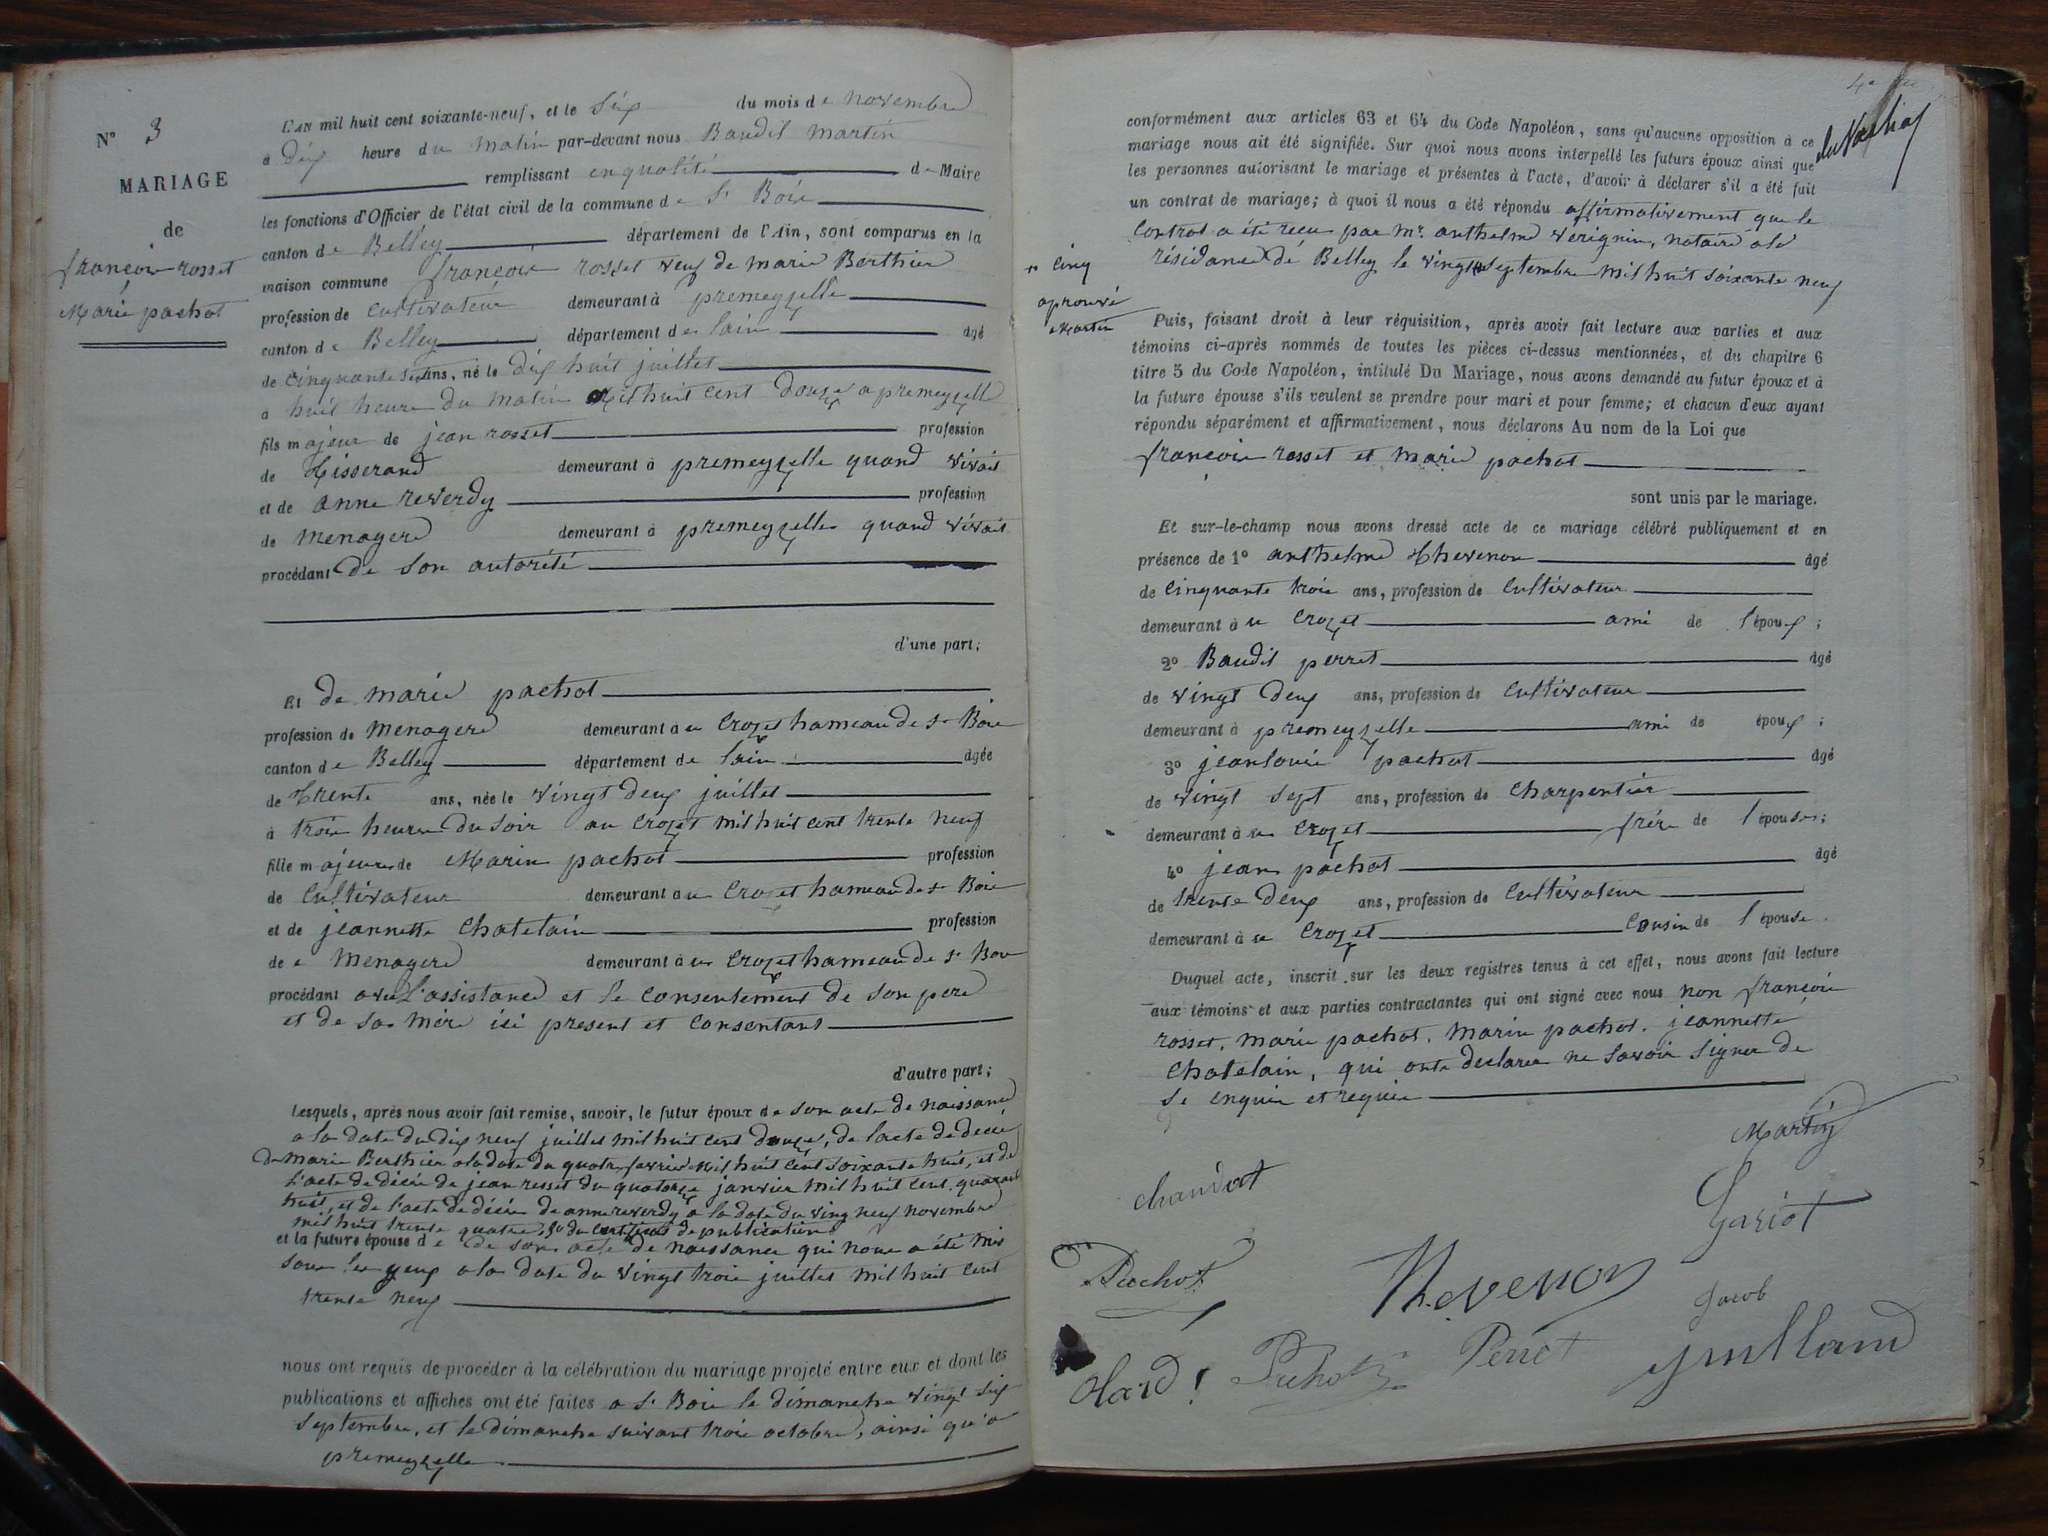 N° 3
MARIAGE
de
françois rosset
Marie pachot
L'AN mil huit cent soixante-neuf, et le Six du mois de novembre
à Dix heure du matin par-devant nous Baudit martin
remplissant enqualité de Maire
les fonctions d'Officier de l'état civil de la commune de St Bois
canton de Belley département de l'Ain, sont comparus en la
maison commune françois rosset veuf de marie Berthier
profession de cultivateur demeurant à premeyzelle
canton de Belley département de lain âgé
de cinquante sept ans, né le dix huit juillet
à huit heure du matin mil huit cent douze a premeyzelle
fils majeur de jean rosset profession
de Tisserand demeurant à premeyzelle quand vivait
et de anne reverdy profession
de menagere demeurant à premeyzelle quand vivait
procédant de son autorité
d'une part;
Et de marie pachot
profession de menagere demeurant au crozet hameau de st Bois
canton de Belley département de lain âgée
de Trente ans, née le vingt deux juillet
à trois heure du soir au crozet mil huit cent trente neuf
fille majeure de Marin pachot profession
de cultivateur demeurant au crozet hameau de st Bois
et de jeannette Chatelain profession
de menagere demeurant au crozet hameau de st Bois
procédant avec l'assistance et le consentement de son pere
et de sa mere ici present et consentant
d'autre part;
Lesquels, après nous avoir fait remise, savoir, le futur époux de son acte de naissance
a la date du dix neuf juillet mil huit cent douze, de l'acte de décès
de marie Berthier a la date du quatre fevrier mil huit cent soixante huit, et de
l'acte de décès de jean rosset du quatorze janvier mil huit cent quarante
huit, et de l'acte de décès de anne reverdy a la date du ving neuf novembre
mil huit trente quatre, du certificat de publication
et la future épouse de de son acte de naissance qui nous a été mis
sous les yeux a la date du vingt trois juillet mil huit cent
trente neuf
nous ont requis de procéder à la célébration du mariage projeté entre eux et dont les
publications et affiches ont été faites a st Bois le dimanche vingt six
septembre, et le dimanche suivant trois octobre, ainsi qu'a
premeyzelle
conformément aux articles 63 et 64 du Code Napoléon, sans qu'aucune opposition à ce
mariage nous ait été signifiée. Sur quoi nous avons interpellé les futurs époux ainsi que
les personnes autorisant le mariage et présentes à l'acte, d'avoir à déclarer s'il a été fait
un contrat de mariage; à quoi il nous a été répondu affirmativement que le
contrat a été recu par mr. anthelme Verignin, notaire a la
résidance de Belley le vingt septembre mil huit soixante neuf
cinq
aprouvé
Martin
Puis, faisant droit à leur réquisition, après avoir fait lecture aux parties et aux
témoins ci-après nommés de toutes les pièces ci-dessus mentionnées, et du chapitre 6
titre 5 du Code Napoléon, intitulé Du Mariage, nous avons demandé au futur époux et à
la future épouse s'ils veulent se prendre pour mari et pour femme; et chacun d'eux ayant
répondu séparément et affirmativement, nous déclarons Au nom de la Loi que
françois rosset et marie pachot
sont unis par le mariage.
Et sur-le-champ nous avons dressé acte de ce mariage célébré publiquement et en
présence de 1° anthelme Thevenon âgé
de cinquante trois ans, profession de cultivateur
demeurant à u crozet ami de l'époux;
2° Baudit perret âgé
de vingt deux ans, profession de cultivateur
demeurant à premeyzelle ami de époux;
3° jean louis pachot âgé
de vingt sept ans, profession de charpentier
demeurant à u crozet frère de l'épouse;
4° jean pachot âgé
de trente deux ans, profession de cultivateur
demeurant à u crozet cousin de l'épouse.
Duquel acte, inscrit sur les deux registres tenus à cet effet, nous avons fait lecture
aux témoins et aux parties contractantes qui ont signé avec nous non françois
rosset, marie pachot, marin pachot, jeannette
Chatelain, qui onts declarer ne savoir signer de
se enquis et requis
Martin
chaudot
Gariot
Pachot
Thevenon
Jacob
Perret
Pachot